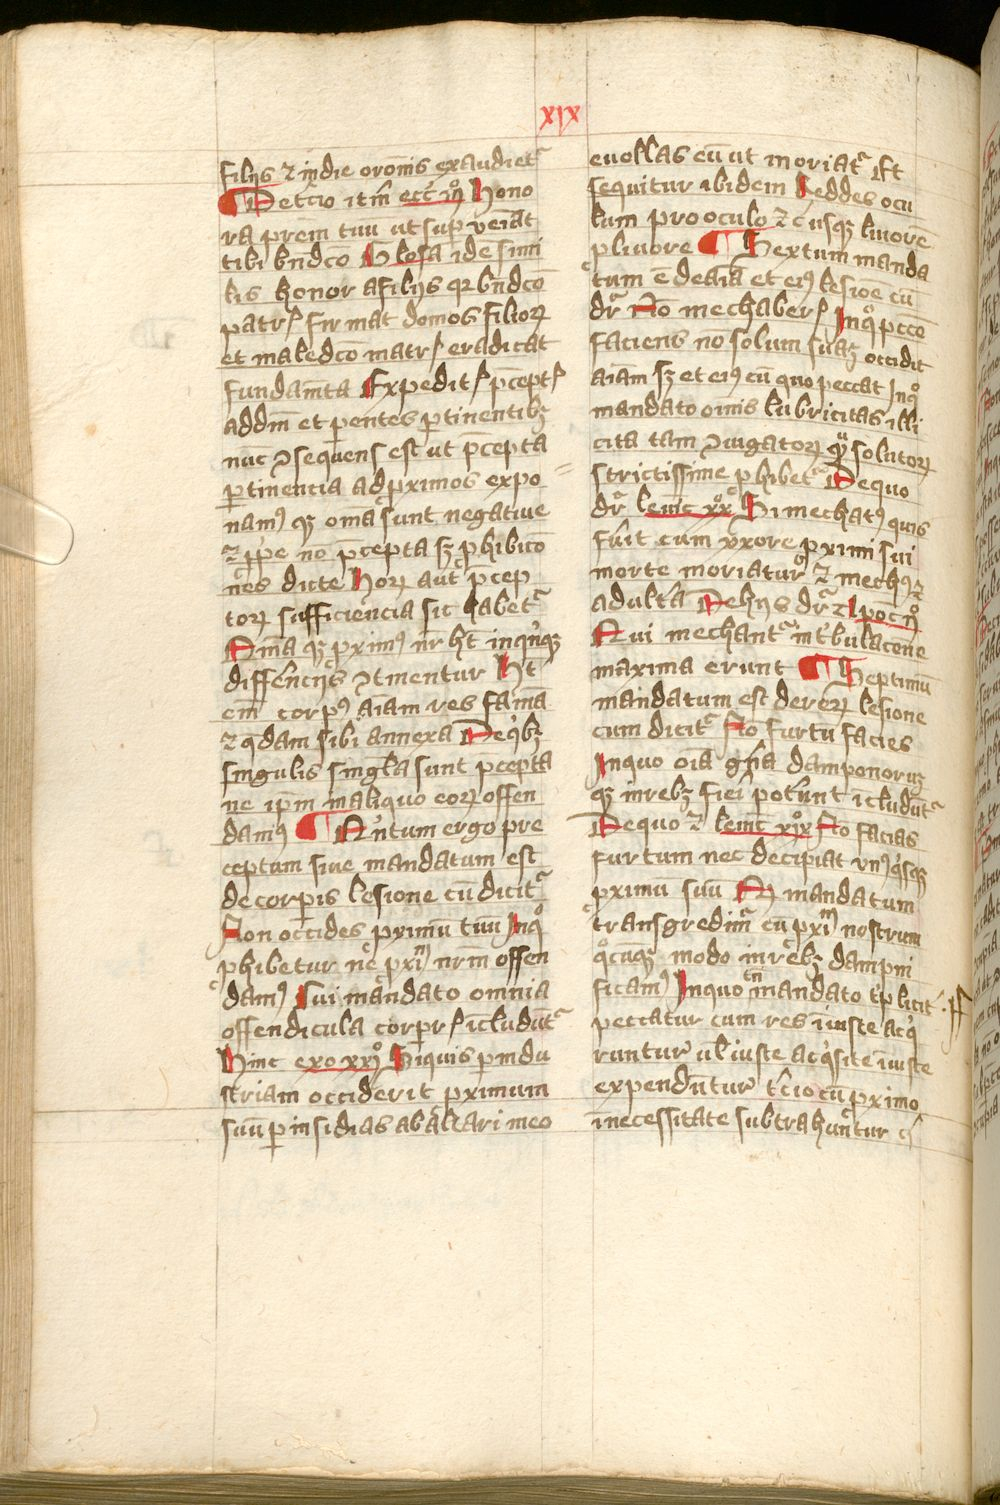 xix
filijs ⁊ in die oronis exaudietʳ
¶ De tcio itm̄ ecc̄ iij° Hono
ra prēm tuū ut sup̄ ueīat
tibi bn̄dcō Glosa idē simi
lis honor a filijs qz bn̄dcō
patrꝭ firmat domos filioꝝ
et maledcō matrꝭ eradicat
fundam̄ta Expeditꝭ p̄ceptꝭ
ad dm̄ et pentes ꝑtinentibꝫ
nūc ꝯsequens est ut p̄cepta
ꝑtinencia ad pximos expo
namꝰ qꝫ om̄a sunt negatiue
⁊ ꝓpe nō p̄cepta sꝫ phibicō
nes dicte Hoꝝ aut̄ p̄cep
toꝝ sufficiencia sic habetʳ
Om̄a qꝫ pximꝰ nr̄ ht̄ in qͥnqꝫ
differēncijs ꝯtinentur Ht̄
em̄ corpꝰ aīam res famā
⁊ qͣdam sibi annexa De qͥbꝫ
singulis singła sunt p̄cepta
ne ip̄m in aliquo eoꝝ offen
damꝰ ¶ Qͥntum ergo pre
ceptum siue mandatum est
de corpis lesione cū dicitʳ
Non occides pximū tuū In qͦ
phibetur ne pxim̄ nrm̄ offen
damꝰ Sui mandato omnia
offendicula corprꝭ īcludūtʳ
Hinc exo xxj° Si quis ꝑ indu
striam occiderit pximum
suū ꝑ insidias ab altari meo
euollas eū ut moriatʳ Et
sequitur ibidem Reddes ocu
lum pro oculo ⁊c̄ usqꝫ liuorē
p liuore ¶ Sextum manda
tum ē de aīa et eiꝰ lesiōe cū
drʳ Nō mechaberꝭ In qͦ pccm̄
faciens nō solum suā occidit
aīam sꝫ et eiꝰ cū quo peccat In qͦ
mandato om̄is lubricitas illi
cita tam ꝯiugatoꝝ qͣ solutoꝝ
strictissime phibetʳ De quo
drʳ leuitic̄ xx° Si mechatꝰ quis
fuit cum vxore pximi sui
morte moriatur ⁊ mechꝰ ⁊
adultā De hijs drʳ ⁊ apoc̄ ij°
Qui mechantʳ in t̄bulacōne
maxima erunt ¶ Septimū
mandatum est de reꝝ lesione
cum dicitʳ Nō furtū facies
In quo oīa gn̄a dampnoruꝫ
qꝫ in rebꝫ fieri pot̄unt īcludūtʳ
De quo ⁊ leuitic̄ xix° Nō facias
furtum nec decipiat vnꝰqͥsqꝫ
pximū suū Qͥ mandatum
transgredimʳ cū pxim̄ nostrum
qͦcūqꝫ modo in rebꝫ dampni
ficamꝰ In quo tn̄ mandato tp̄licitʳ
peccatur cum res īiuste acqͥ
runtur ul̄ iuste acqͥsite īiuste
expenduntur t̄cio cū pximo
ī necessitate subtrahuntur